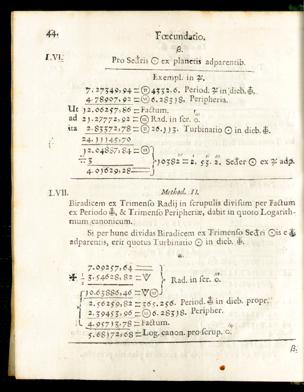 44. Fœcundatio.
β.
I.VI. Pro Sectris ☉ ex planetis adparentib.
Exempl. in ♃.
7.27349,94 = 4332.6. Period. ♃ in dieb.
4.78907,92 = 6.28318. Peripheria.
Ut 12.06257,86 = Factum.
ad 21.27772,92 = Rad. in scr.
ita 2.83372,78 = 26.113. Turbinatio ☉ in dieb.
24.11145,70
12.04887,84
÷ 3
4.01629,28
10382 = 2. 53. 2. Secter ☉ ex ♃ adp.
I.VII. Method. II.
Biradicem ex Trimenso Radij in scrupulis divisum per Factum
ex Periodo, & Trimenso Peripheriæ, dabit in quoto Logarith-
mum canonicum.
Si per hunc dividas Biradicem ex Trimenso Sectri ☉is e
adparentis, erit quotus Turbinatio ☉ in dieb.
α.
7.09257,64
3.54628,82
Rad. in scr.
10.63886,46
2.56250,82 = 365.256. Period. in dieb. propr.
2.39453,96 = 6.28318. Peripher.
4.95713,78 = Factum.
5.68172,68 = Log. canon. pro scrup.
β.